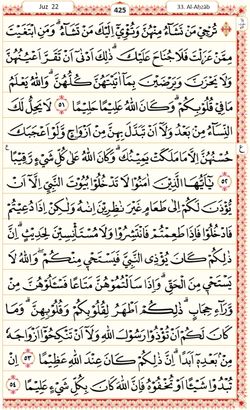 Juz 22
425
33. Al-Ahzab
تُرْجِى مَنْ تَشَآءُ مِنْهُنَّ وَتُـْٔوِىٓ اِلَيْكَ مَنْ تَشَآءُ ۗوَمَنِ ابْتَغَيْتَ
مِمَّنْ عَزَلْتَ فَلَا جُنَاحَ عَلَيْكَ ۗذٰلِكَ اَدْنٰٓى اَنْ تَقَرَّ اَعْيُنُهُنَّ
وَلَا يَحْزَنَّ وَيَرْضَيْنَ بِمَآ اٰتَيْتَهُنَّ كُلُّهُنَّ ۗوَاللّٰهُ يَعْلَمُ
مَا فِيْ قُلُوْبِكُمْ ۗوَكَانَ اللّٰهُ عَلِيْمًا حَلِيْمًا ٥١ لَا يَحِلُّ لَكَ
النِّسَآءُ مِنْۢ بَعْدُ وَلَآ اَنْ تَبَدَّلَ بِهِنَّ مِنْ اَزْوَاجٍ وَّلَوْ اَعْجَبَكَ
حُسْنُهُنَّ اِلَّا مَا مَلَكَتْ يَمِيْنُكَ ۗوَكَانَ اللّٰهُ عَلٰى كُلِّ شَيْءٍ رَّقِيْبًا
٥٢ يٰٓاَيُّهَا الَّذِيْنَ اٰمَنُوْا لَا تَدْخُلُوْا بُيُوْتَ النَّبِيِّ اِلَّآ اَنْ
يُّؤْذَنَ لَكُمْ اِلٰى طَعَامٍ غَيْرَ نٰظِرِيْنَ اِنٰىهُ وَلٰكِنْ اِذَا دُعِيْتُمْ
فَادْخُلُوْا فَاِذَا طَعِمْتُمْ فَانْتَشِرُوْا وَلَا مُسْتَأْنِسِيْنَ لِحَدِيْثٍ ۗاِنَّ
ذٰلِكُمْ كَانَ يُؤْذِى النَّبِيَّ فَيَسْتَحْيٖ مِنْكُمْ ۖوَاللّٰهُ لَا
يَسْتَحْيٖ مِنَ الْحَقِّ ۗوَاِذَا سَاَلْتُمُوْهُنَّ مَتَاعًا فَسْـَٔلُوْهُنَّ مِنْ
وَّرَآءِ حِجَابٍ ۗذٰلِكُمْ اَطْهَرُ لِقُلُوْبِكُمْ وَقُلُوْبِهِنَّ ۗوَمَا
كَانَ لَكُمْ اَنْ تُؤْذُوْا رَسُوْلَ اللّٰهِ وَلَآ اَنْ تَنْكِحُوْٓا اَزْوَاجَهٗ
مِنْۢ بَعْدِهٖٓ اَبَدًا ۗاِنَّ ذٰلِكُمْ كَانَ عِنْدَ اللّٰهِ عَظِيْمًا ٥٣ اِنْ
تُبْدُوْا شَيْـًٔا اَوْ تُخْفُوْهُ فَاِنَّ اللّٰهَ كَانَ بِكُلِّ شَيْءٍ عَلِيْمًا ٥٤